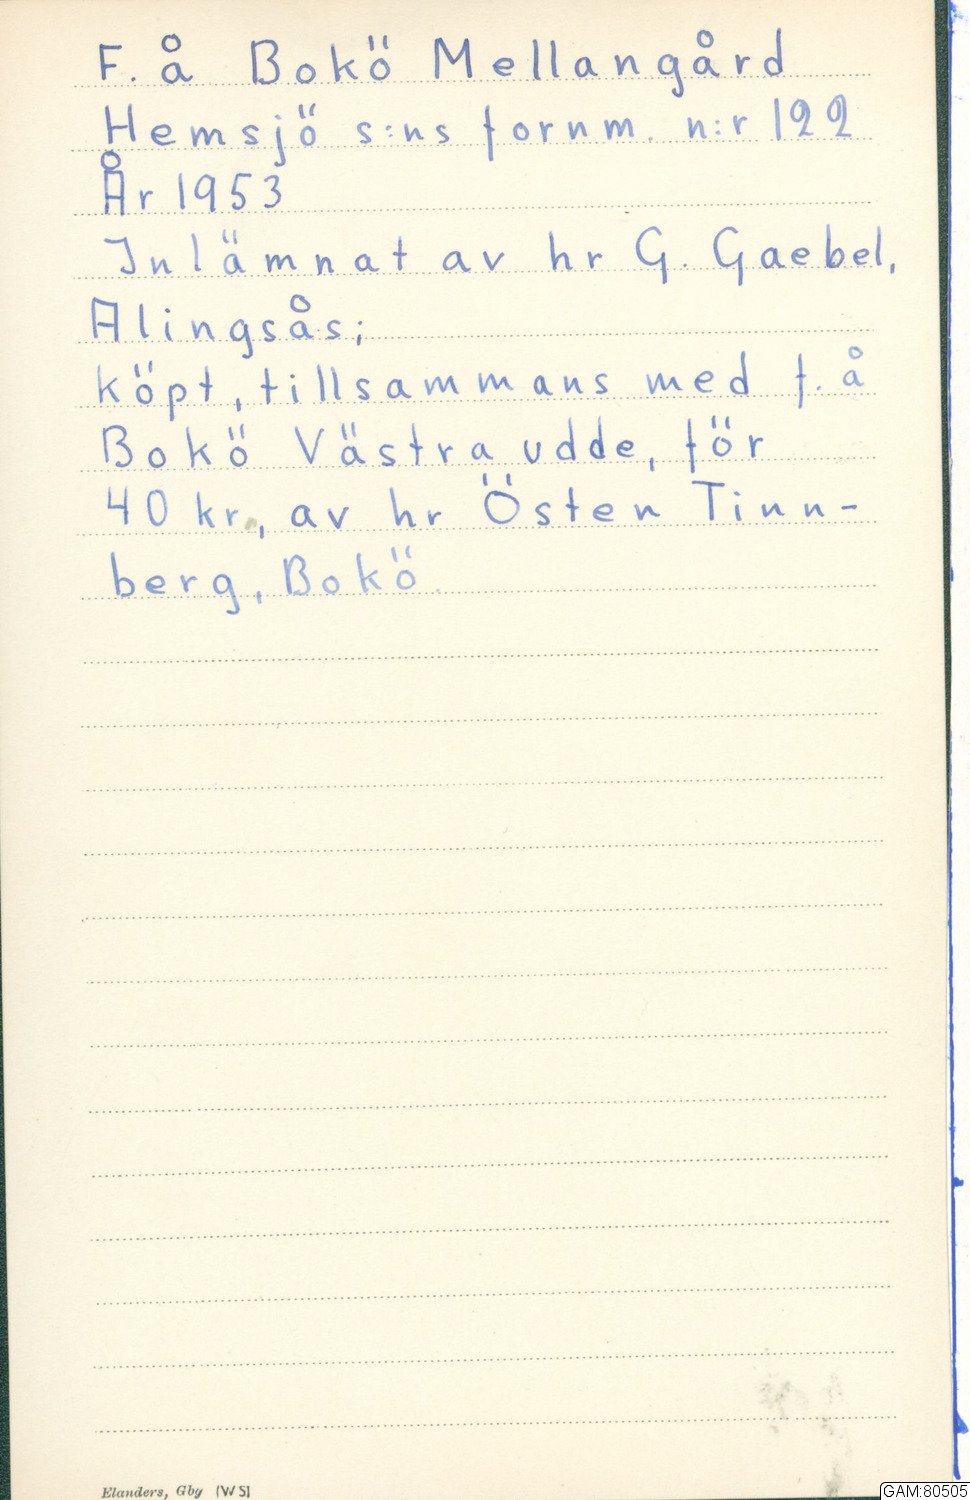 F. å Bokö Mellangård
Hemsjö s:ns fornm. n:r 122
År 1953
Inlämnat av hr G. Gaebel,
Alingsås;
köpt, tillsammans med f. å
Bokö Västra udde, för
40 kr., av hr Östen Tinn-
berg, Bokö.
Elanders, Gby (WS)
GAM:80505